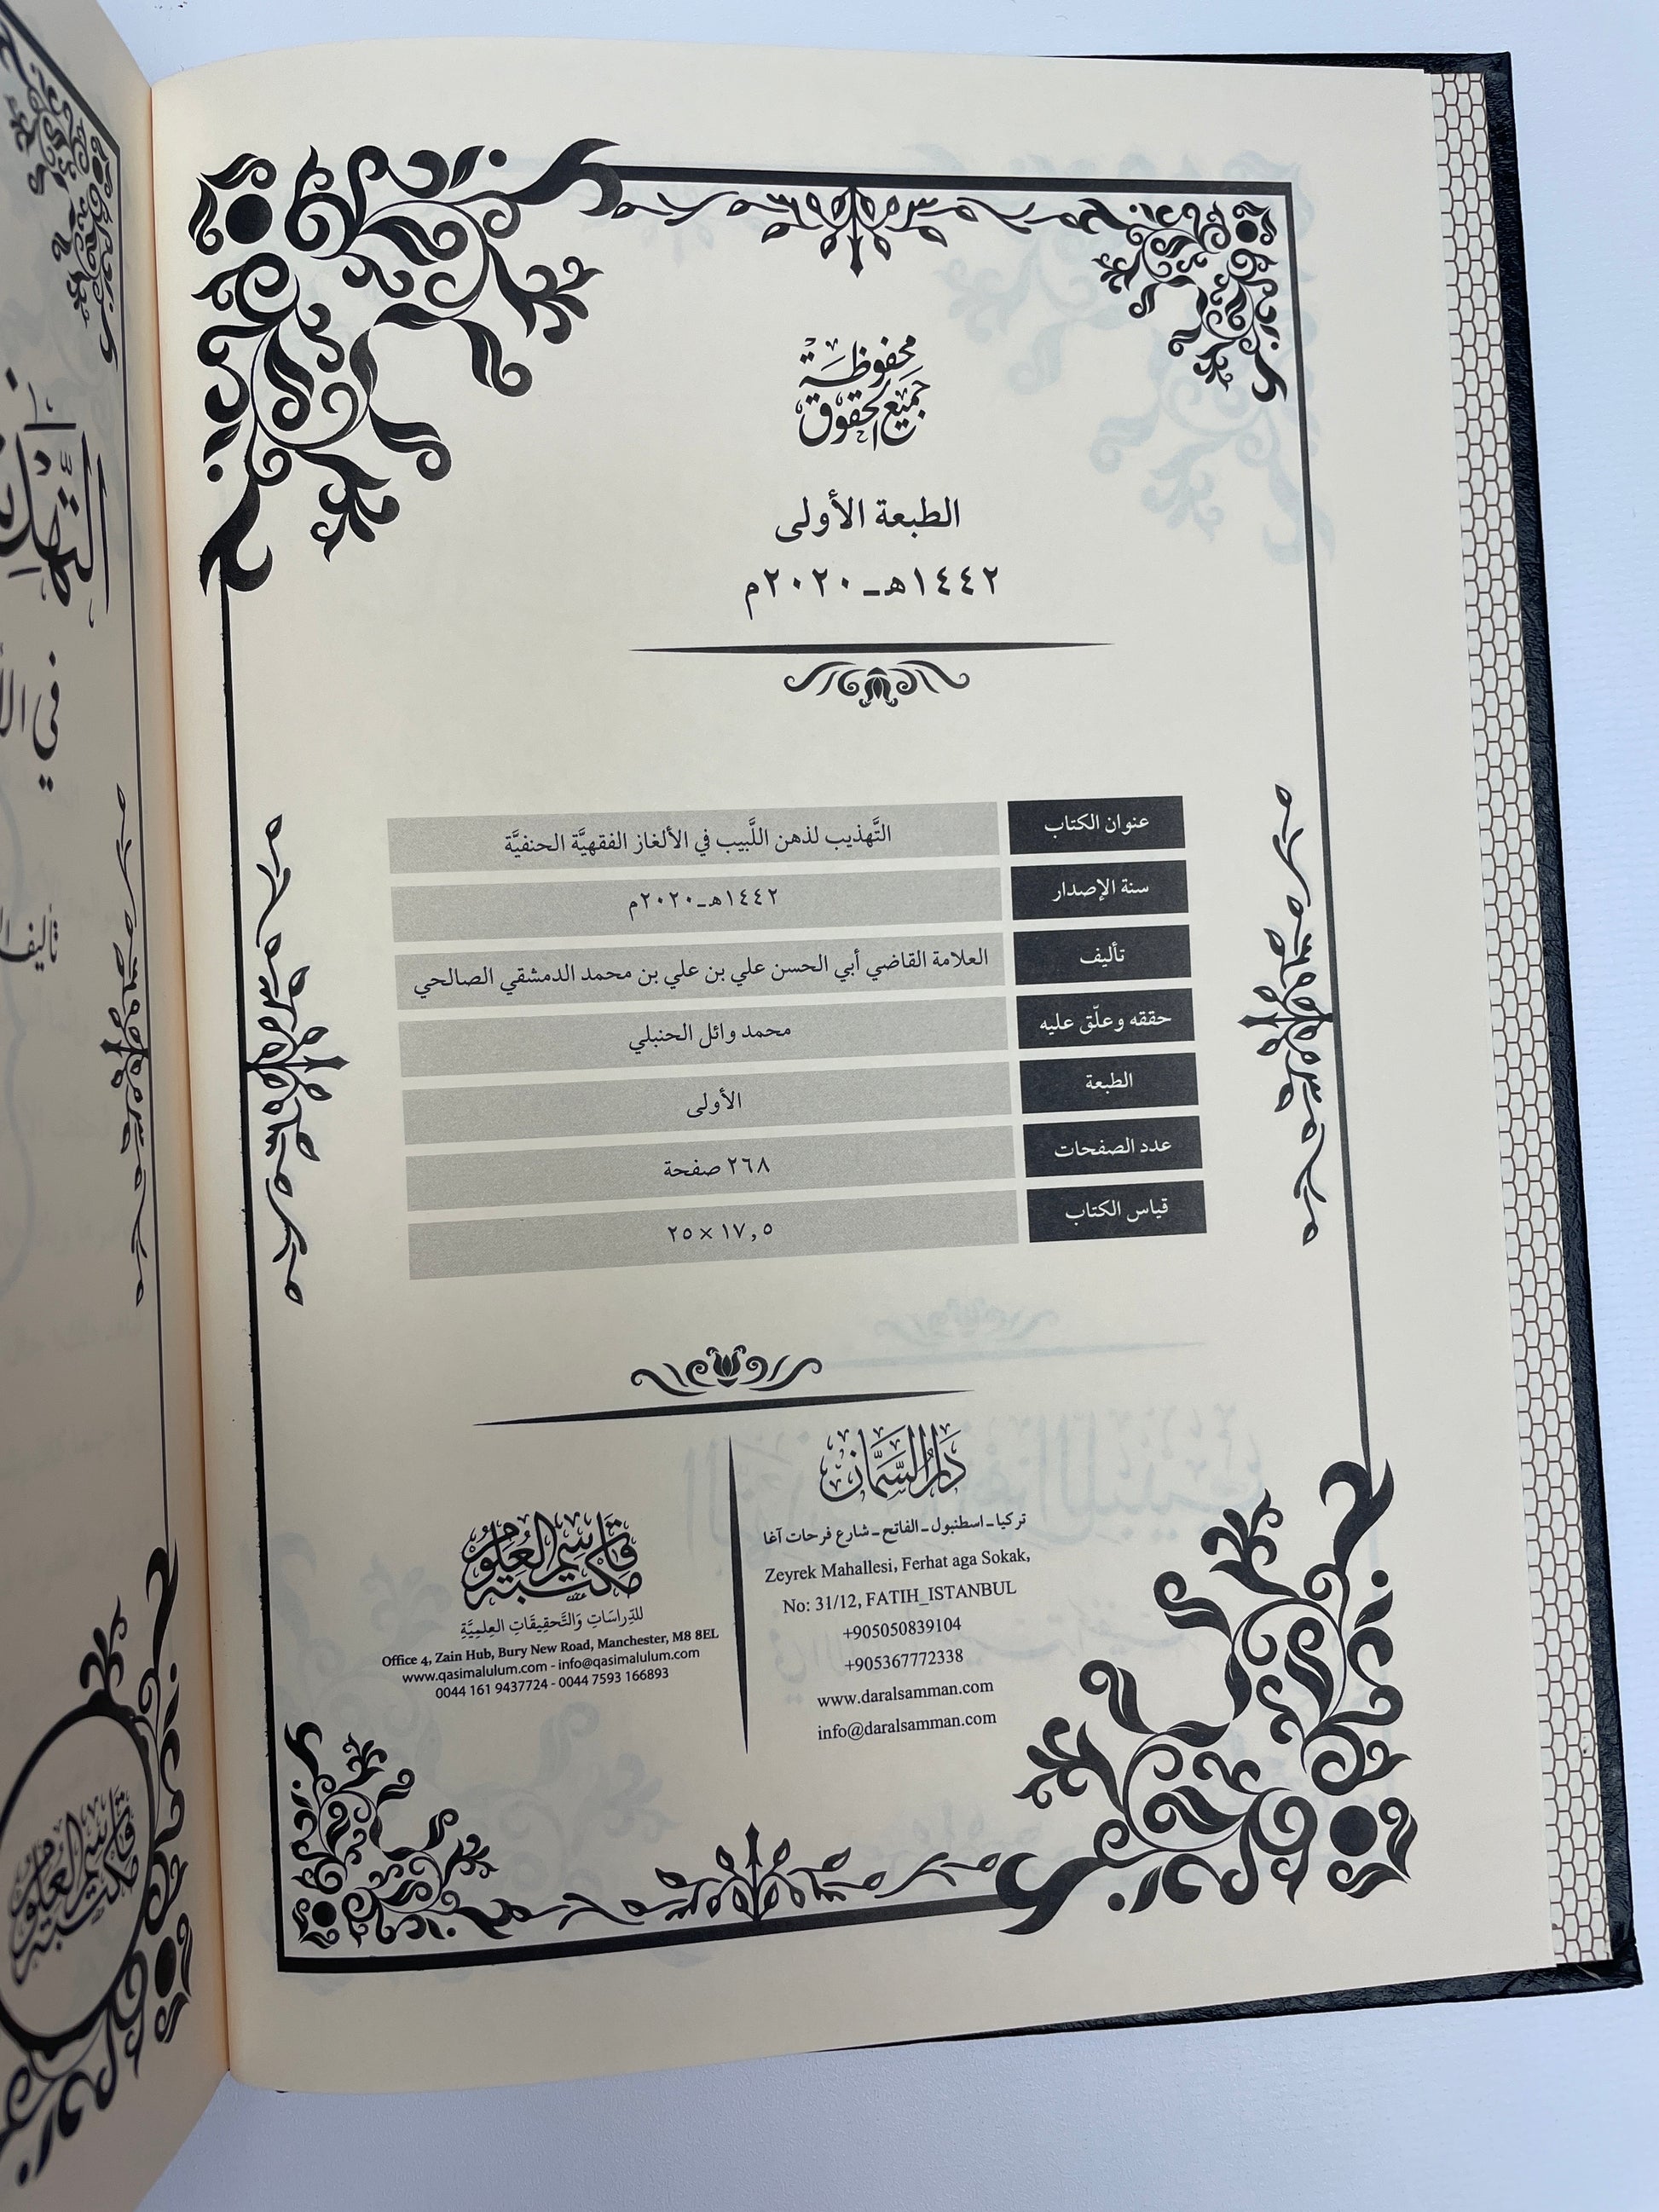 محفوظة
جميع الحقوق
الطبعة الأولى
١٤٤٢هـ ـ ٢٠٢٠م
عنوان الكتاب
التَّهذيب لذهن اللَّبيب في الألغاز الفقهيَّة الحنفيَّة
سنة الإصدار
١٤٤٢هـ ـ ٢٠٢٠م
تأليف
العلامة القاضي أبي الحسن علي بن علي بن محمد الدمشقي الصالحي
حققه وعلّق عليه
محمد وائل الحنبلي
الطبعة
الأولى
عدد الصفحات
٢٦٨ صفحة
قياس الكتاب
١٧,٥ × ٢٥
دار السمان
تركيا ـ اسطنبول ـ الفاتح ـ شارع فرحات آغا
Zeyrek Mahallesi, Ferhat aga Sokak,
No: 31/12, FATIH_ISTANBUL
+905050839104
+905367772338
www.daralsamman.com
info@daralsamman.com
قاسم العلوم
مكتبة
للدِّراسَاتِ وَالتَّحقِيقَاتِ العِلمِيَّةِ
Office 4, Zain Hub, Bury New Road, Manchester, M8 8EL
www.qasimalulum.com - info@qasimalulum.com
0044 161 9437724 - 0044 7593 166893
في
تأليف
قاسم العلوم
مكتبة